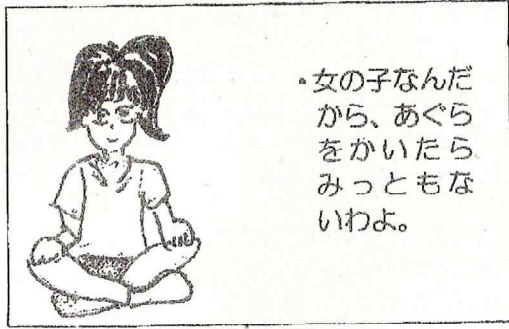 ・女の子なんだ
から、あぐら
をかいたら
みっともな
いわよ。